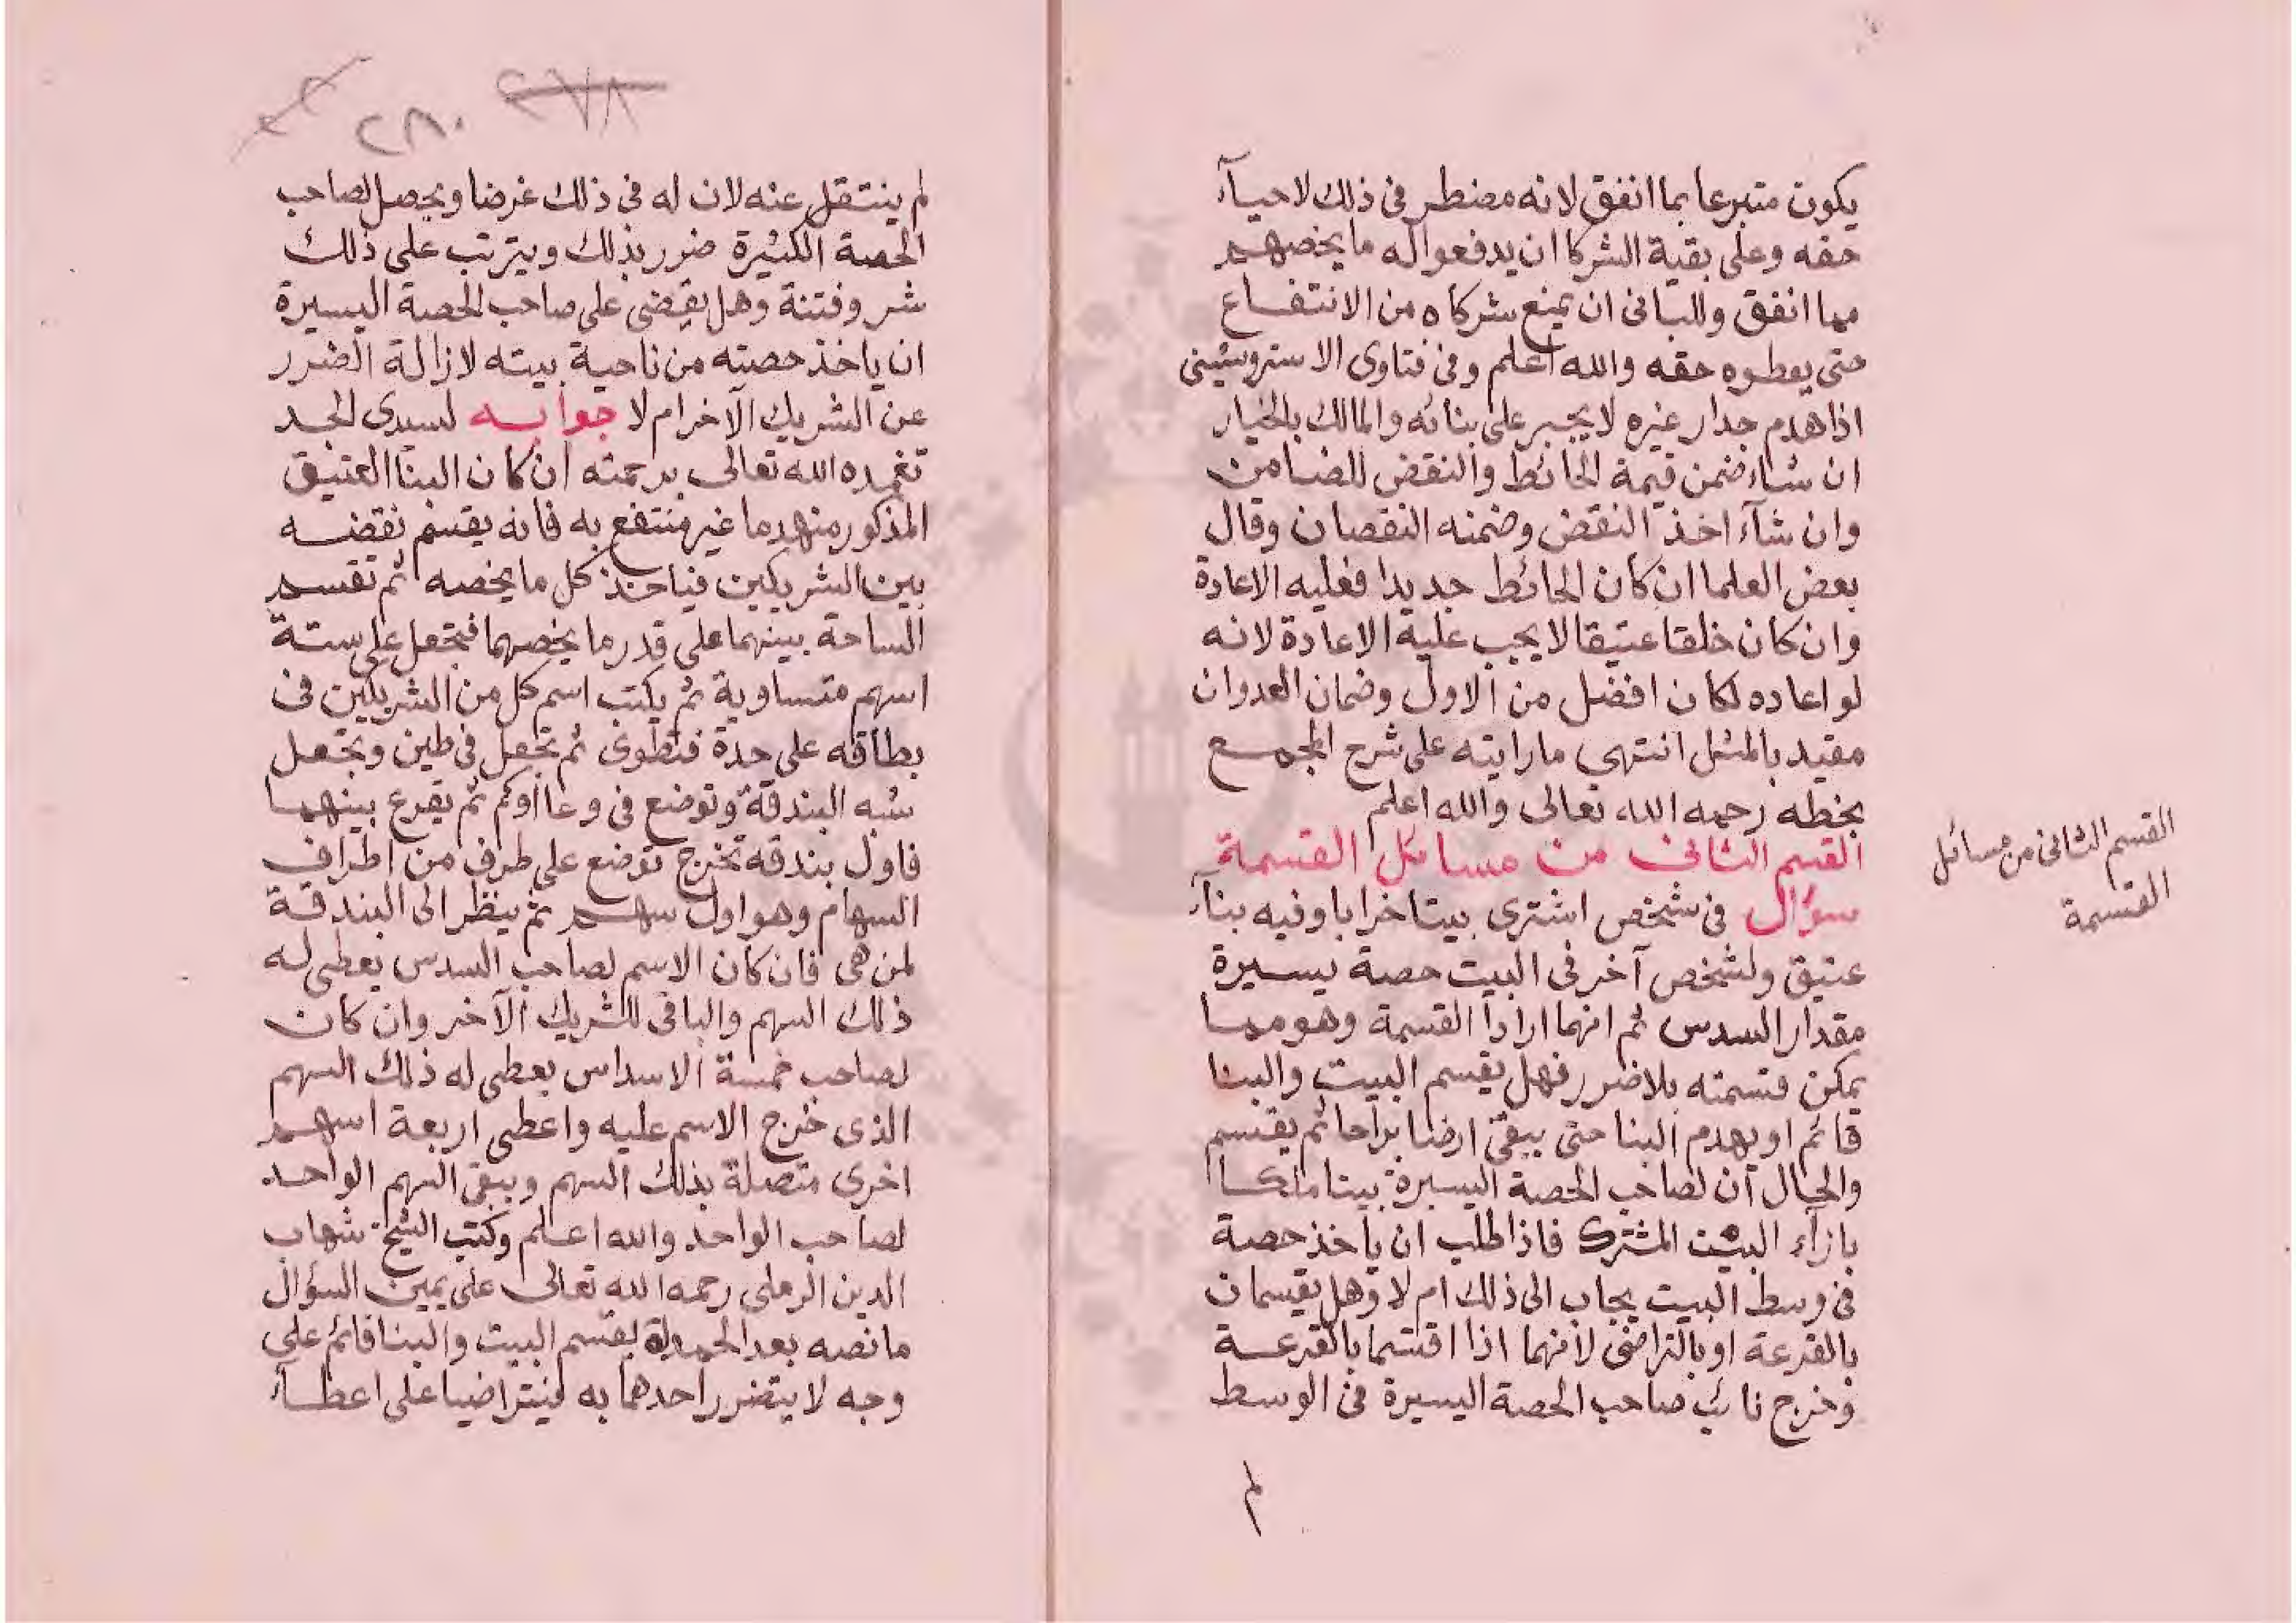 يكون متبرعا بما انفق لانه مضطر فى ذلك لاحيآء
حقه وعلى بقية الشركا ان يدفعوا له ما يخصهم
مما انفق وللبانى ان يمنع شركاه من الانتفاع
حتى يعطوه حقه والله اعلم وفى فتاوى الاستروشينى
اذا هدم جدار غيره لا يجبر على بنائه والمالك بالخيار
ان شاء ضمن قيمة الحائط والنقض للضامن
وان شآء اخذ النقض وضمنه النقصان وقال
بعض العلما ان كان الحائط جديدا فعليه الاعادة
وان كان خلقا عتيقا لا يجب عليه الاعادة لانه
لو اعاده لكان افضل من الاول وضمان العدوان
مقيد بالمثل انتهى ما رايته على شرح المجمع
بخطه رحمه الله تعالى والله اعلم
القسم الثانى من مسائل القسمة
سؤال فى شخص اشترى بيتا خرابا وفيه بنآء
عتيق ولشخص آخر فى البيت حصة يسيرة
مقدار السدس ثم انهما ارادا القسمة وهو مما
يمكن قسمته بلا ضرر فهل يقسم البيت والبنا
قائم او يهدم البنا حتى يبقى ارضا براحا ثم يقسم
والحال ان لصاحب الحصة اليسيرة بيتا ملكا
بازآء البيت المشترك فاذا طلب ان ياخذ حصة
فى وسط البيت يجاب الى ذلك ام لا وهل يقسمان
بالقرعة او بالتراضى لانهما اذا اقتسما بالقرعة
وخرج نائب صاحب الحصة اليسيرة فى الوسط
لم
القسم الثانى من مسائل
القسمة
٢٧٨
٢٨٠
لم ينتقل عنه لان له فى ذلك غرضا ويحصل لصاحب
الحصة الكثيرة ضرر بذلك ويترتب على ذلك
شر وفتنة وهل يقضى على صاحب الحصة اليسيرة
ان ياخذ حصته من ناحية بيته لازالة الضرر
عن الشريك الآخر ام لا جوابه لسيدى الجد
تغمده الله تعالى برحمته ان كان البنا العتيق
المذكور منهدما غير منتفع به فانه يقسم نقضه
بين الشريكين فياخذ كل ما يخصه ثم تقسم
الساحة بينهما على قدر ما يخصهما فتجعل على ستة
اسهم متساوية ثم يكتب اسم كل من الشريكين فى
بطاقه على حدة فتطوى ثم تجعل فى طين وتجعل
شبه البندقة وتوضع فى وعا او كم ثم يقرع بينهما
فاول بندقه تخرج توضع على طرف من اطراف
السهام وهو اول سهم ثم ينظر الى البندقة
لمن هى فان كان الاسم لصاحب السدس يعطى له
ذلك السهم والباقى للشريك الآخر وان كان
لصاحب خمسة الاسداس يعطى له ذلك السهم
الذى خرج الاسم عليه واعطى اربعة اسهم
اخرى متصلة بذلك السهم ويبقى السهم الواحد
لصاحب الواحد والله اعلم وكتب الشيخ شهاب
الدين الرملى رحمه الله تعالى على يمين السؤال
ما نصه بعد الحمدلة يقسم البيت والبنا قائم على
وجه لا يتضرر احدهما به فيتراضيا على اعطآء